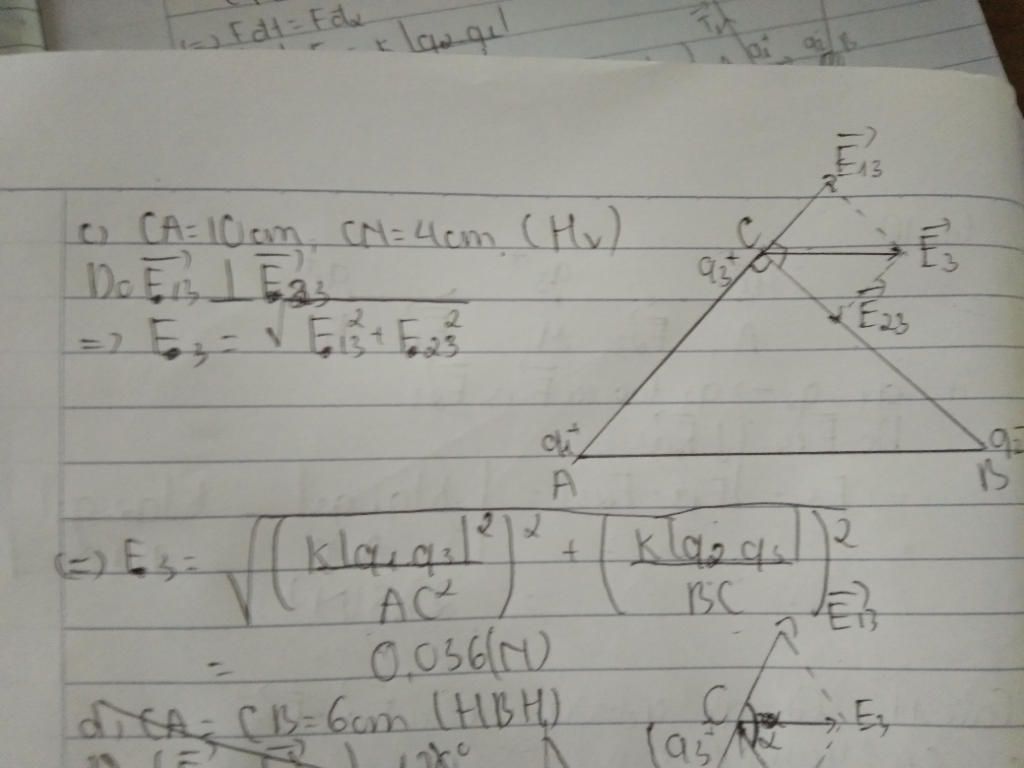 (=) Fdt = Fdx
k |q2 q1|
c) CA = 10cm, CN = 4cm (Hv)
Do E13 ⊥ E23
=> E3 = √ E13² + E23²
E13
C
q3+
E3
E23
q1+
A
q2-
B
(=) E3 = √ ( K|q1 q3|² / AC² )² + ( K|q2 q3| / BC )²
= 0,036(N)
E13
d, CA = CB = 6cm (HBH)
C
E3
q3+
α